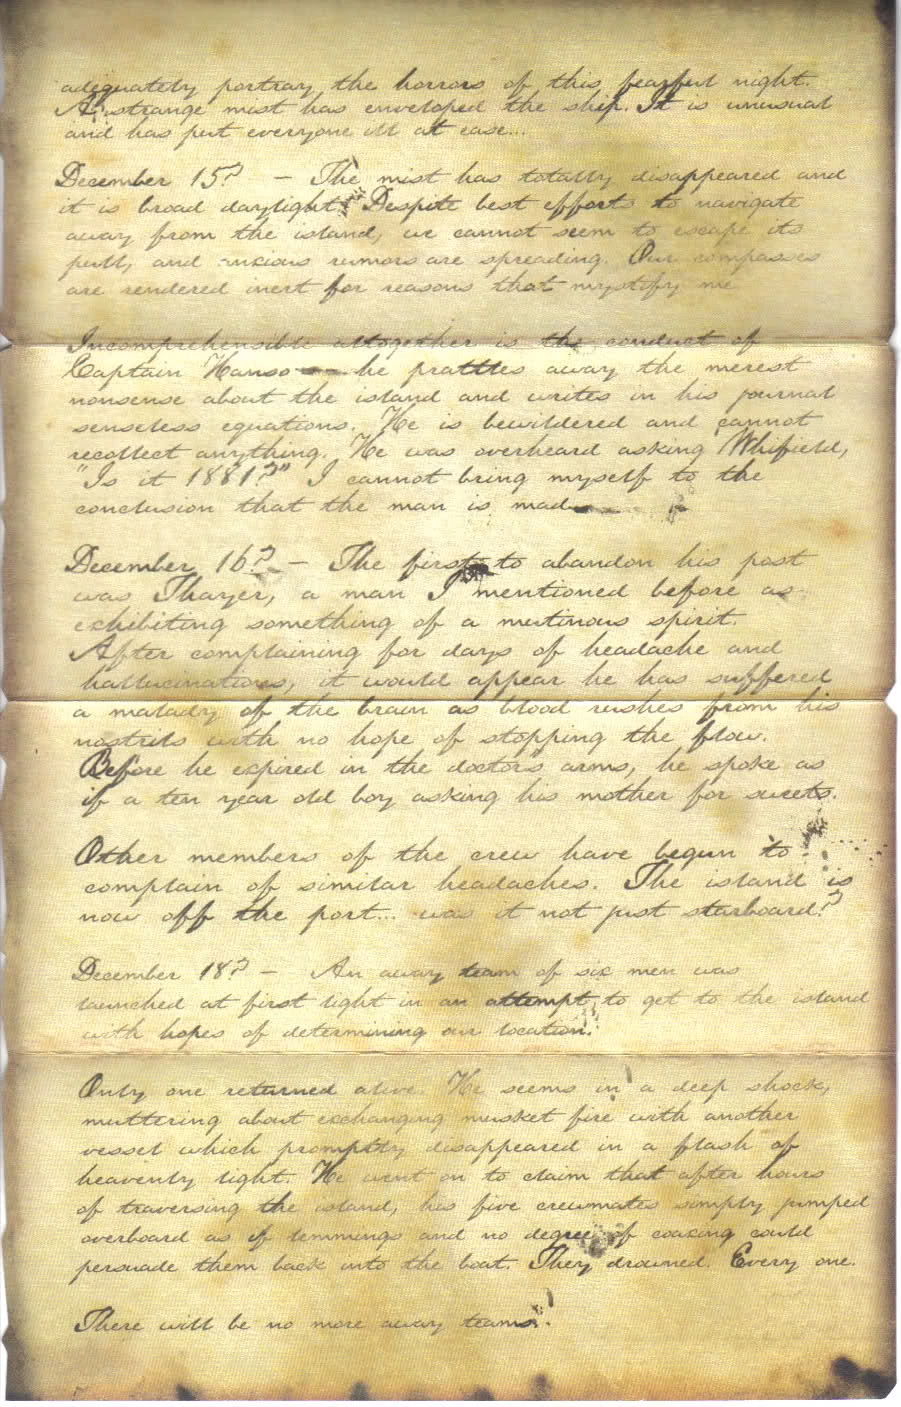 adequately portray the horrors of this fearful night.
A strange mist has enveloped the ship. It is unusual
and has put everyone ill at ease...
December 15? – The mist has totally disappeared and
it is broad daylight. Despite best efforts to navigate
away from the island, we cannot seem to escape its
pull, and anxious rumors are spreading. Our compasses
are rendered inert for reasons that mystify me
Incomprehensible altogether is the conduct of
Captain Hanso – he prattles away the merest
nonsense about the island and writes in his journal
senseless equations. He is bewildered and cannot
recollect anything. He was overheard asking Whifield,
"Is it 1881?" I cannot bring myself to the
conclusion that the man is mad
December 16? – The first to abandon his post
was Thayer, a man I mentioned before as
exhibiting something of a mutinous spirit.
After complaining for days of headache and
hallucinations, it would appear he has suffered
a malady of the brain as blood rushes from his
nostrils with no hope of stopping the flow.
Before he expired in the doctor's arms, he spoke as
if a ten year old boy asking his mother for sweets.
Other members of the crew have begun to
complain of similar headaches. The island is
now off the port... was it not just starboard?
December 18? – An away team of six men was
launched at first light in an attempt to get to the island
with hopes of determining our location.
Only one returned alive. He seems in a deep shock,
muttering about exchanging musket fire with another
vessel which promptly disappeared in a flash of
heavenly light. He went on to claim that after hours
of traversing the island, his five crewmates simply jumped
overboard as if lemmings and no degree of coaxing could
persuade them back into the boat. They drowned. Every one.
There will be no more away teams.